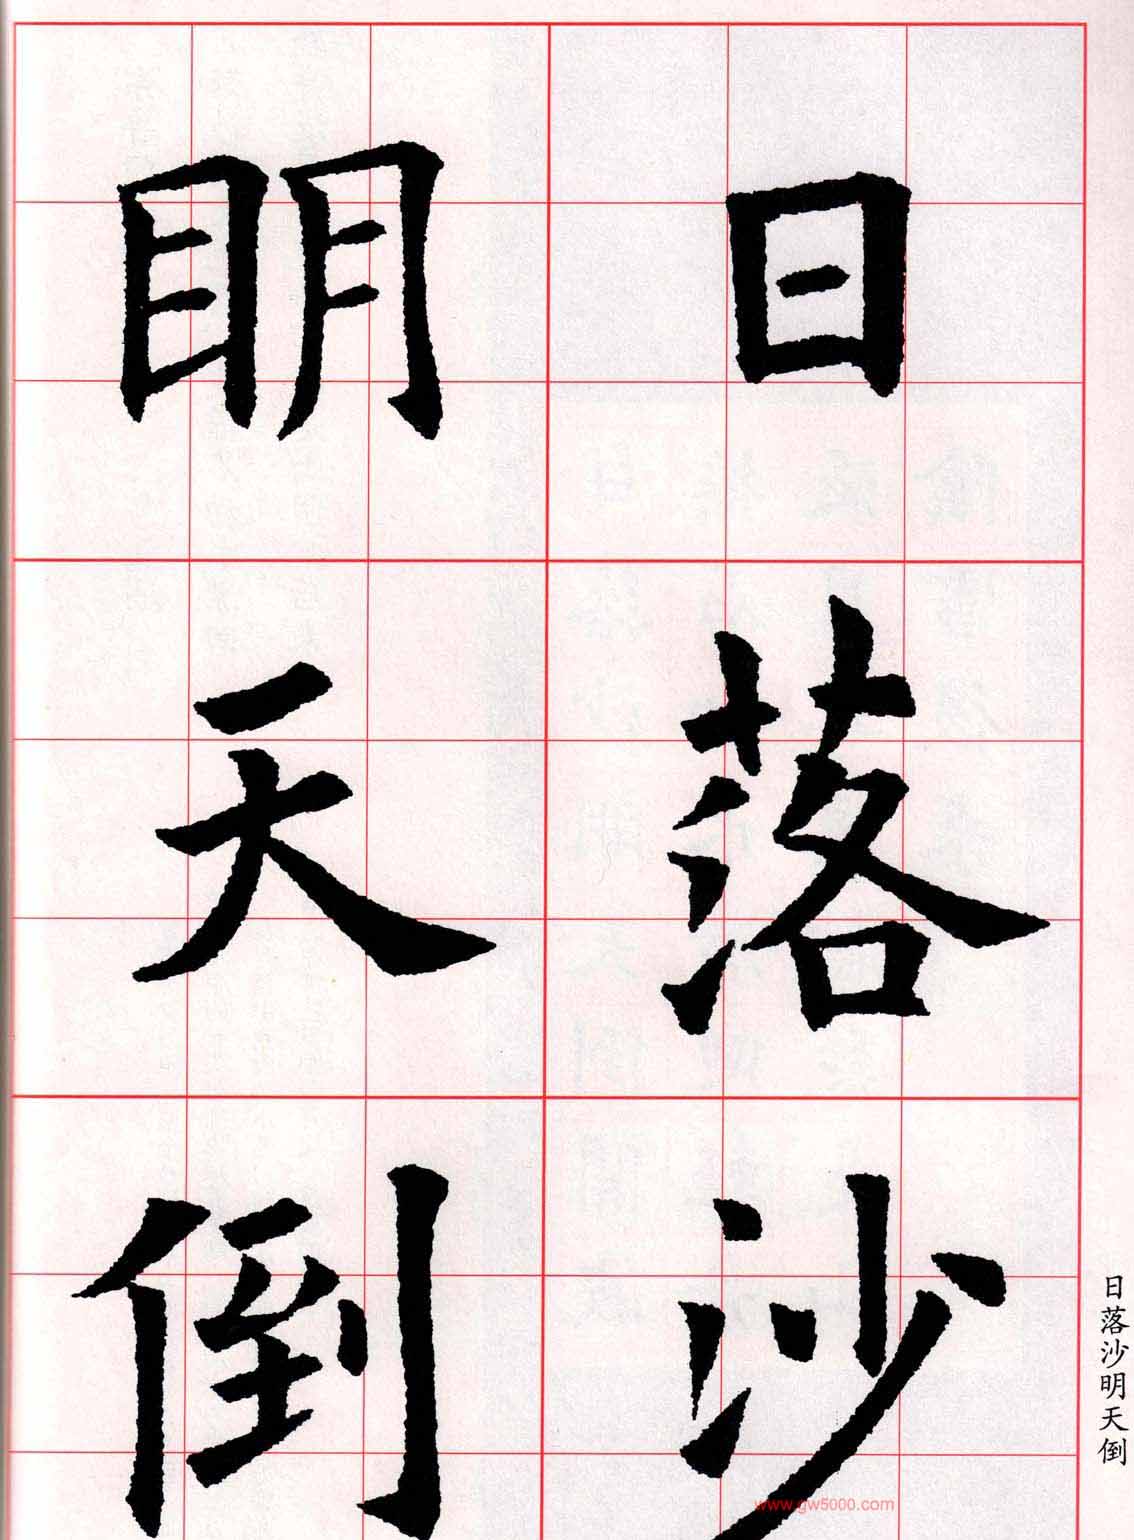 日落沙
明天倒
日落沙明天倒
www.gw5000.com